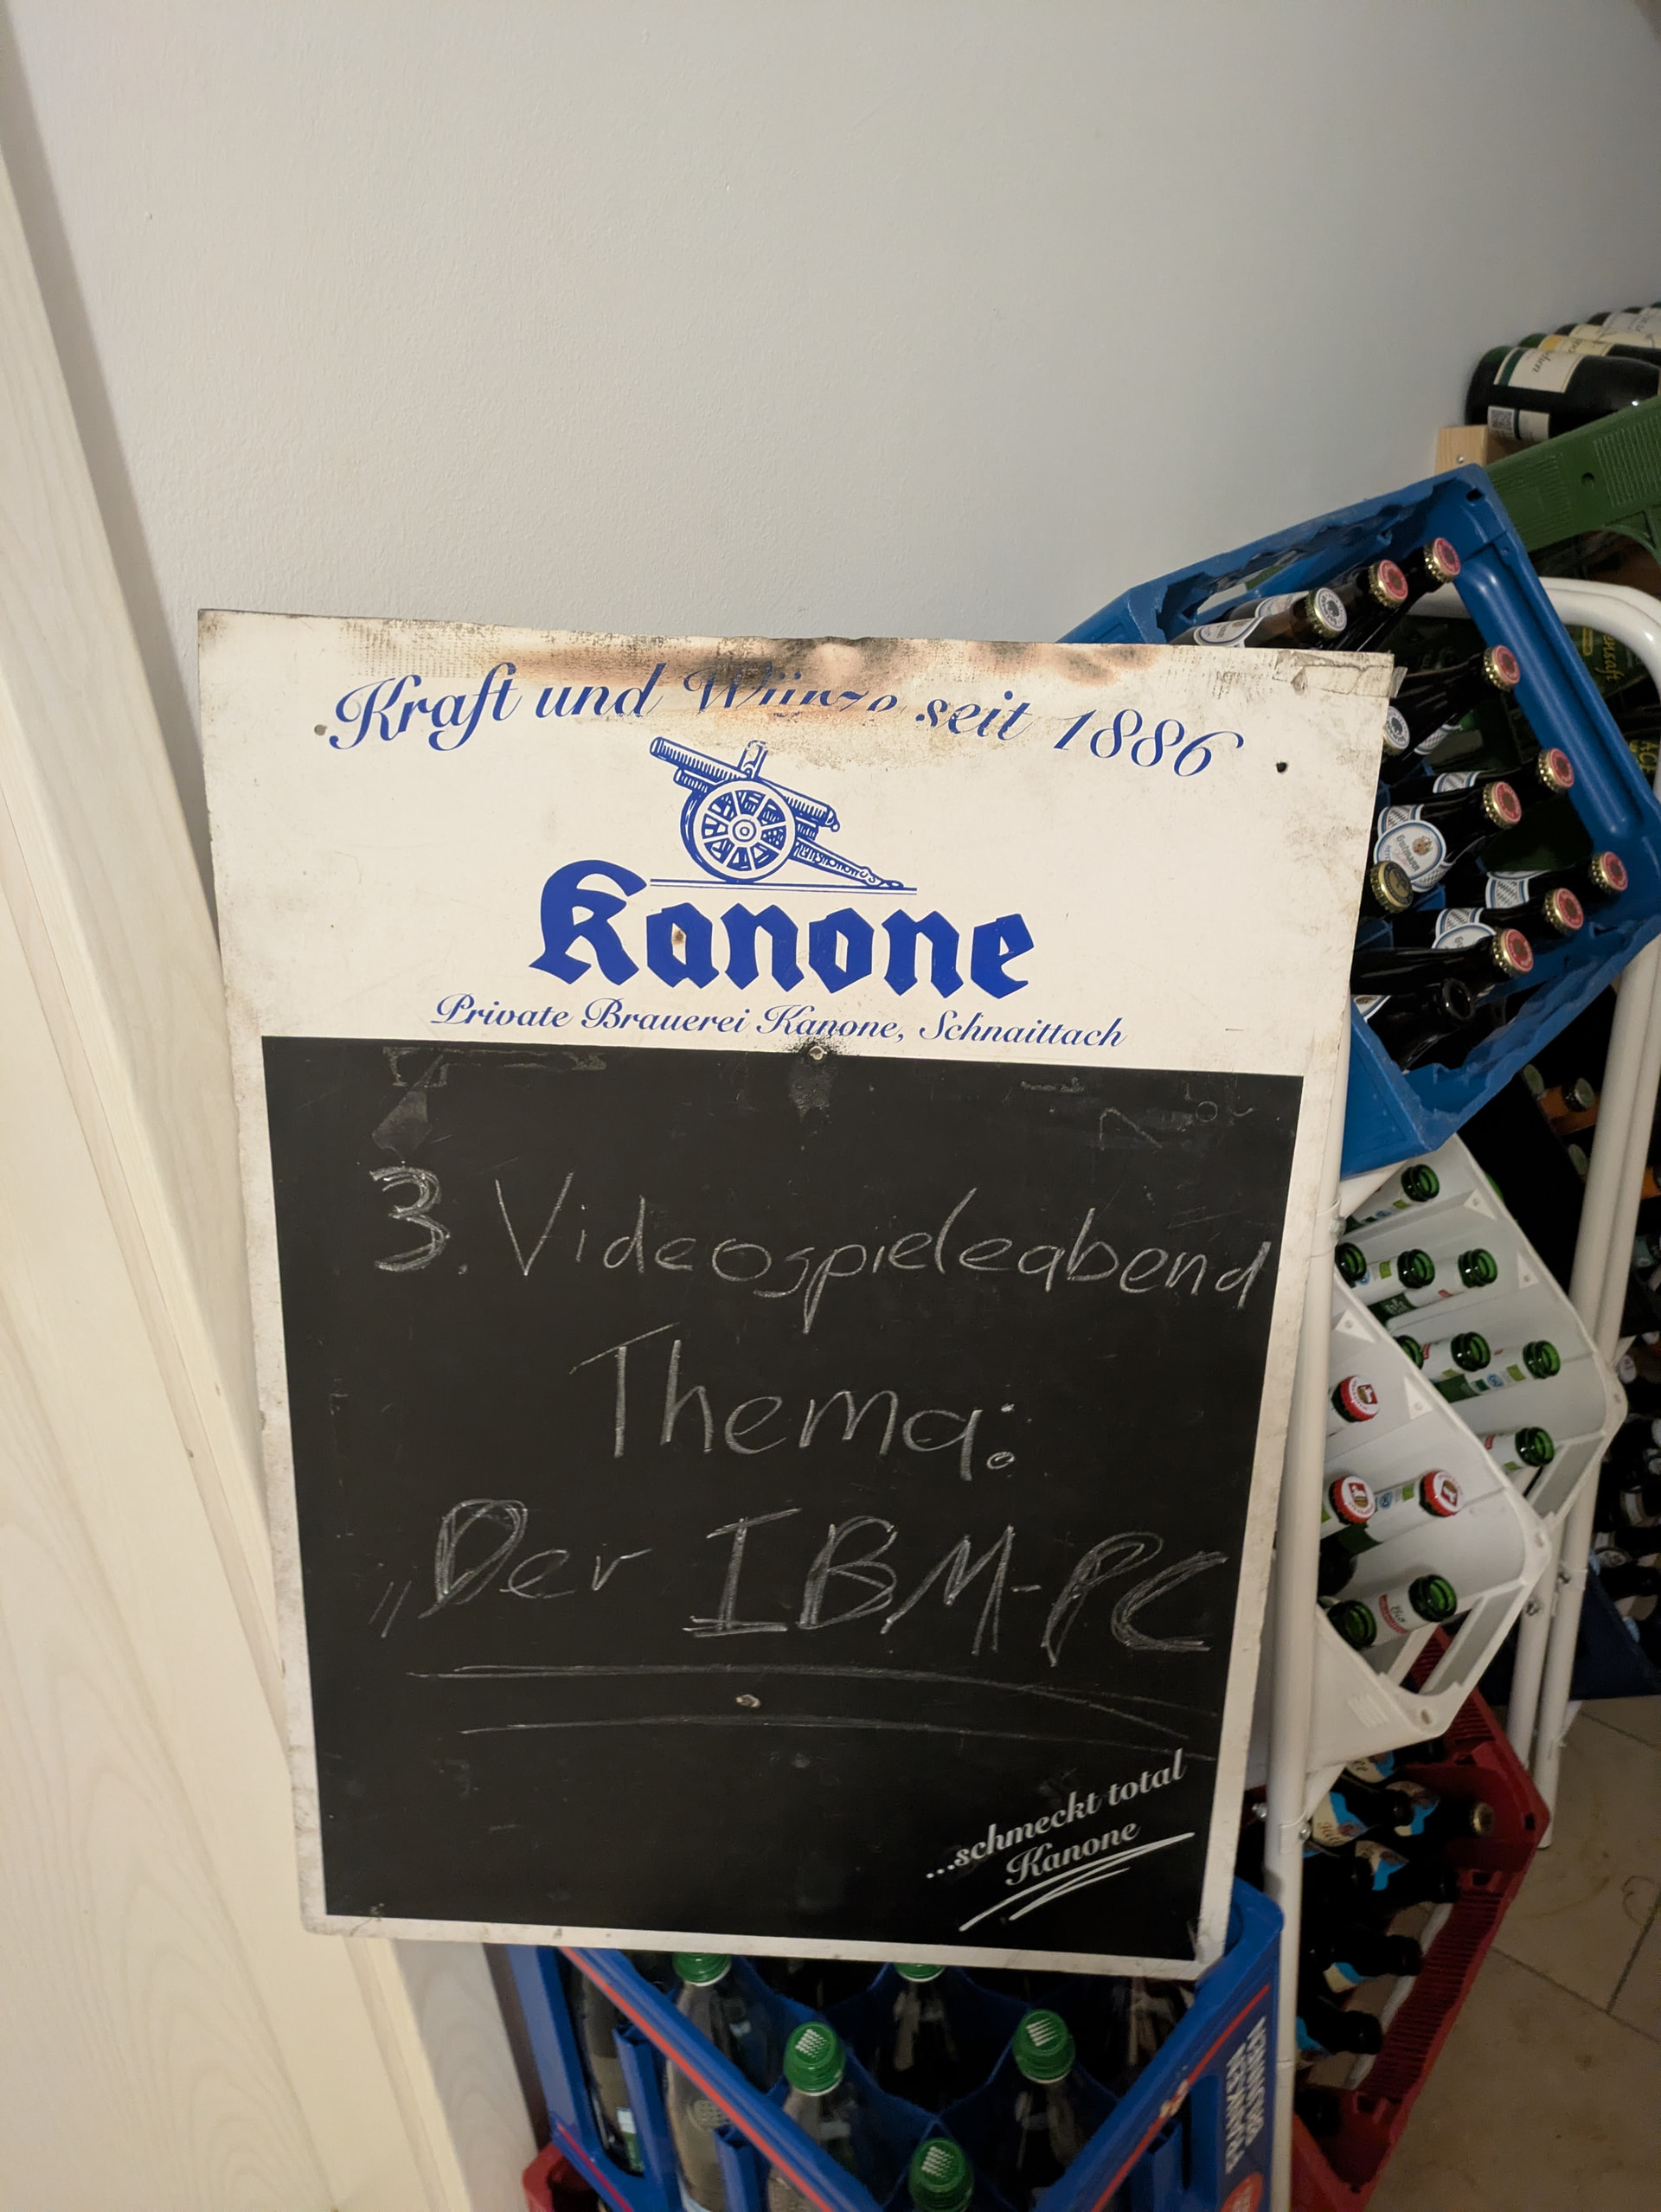 Kraft und Würze seit 1886
Kanone
Private Brauerei Kanone, Schnaittach
3. Videospieleabend
Thema:
„Der IBM-PC
...schmeckt total
Kanone
FRANKEN
BRUNNEN